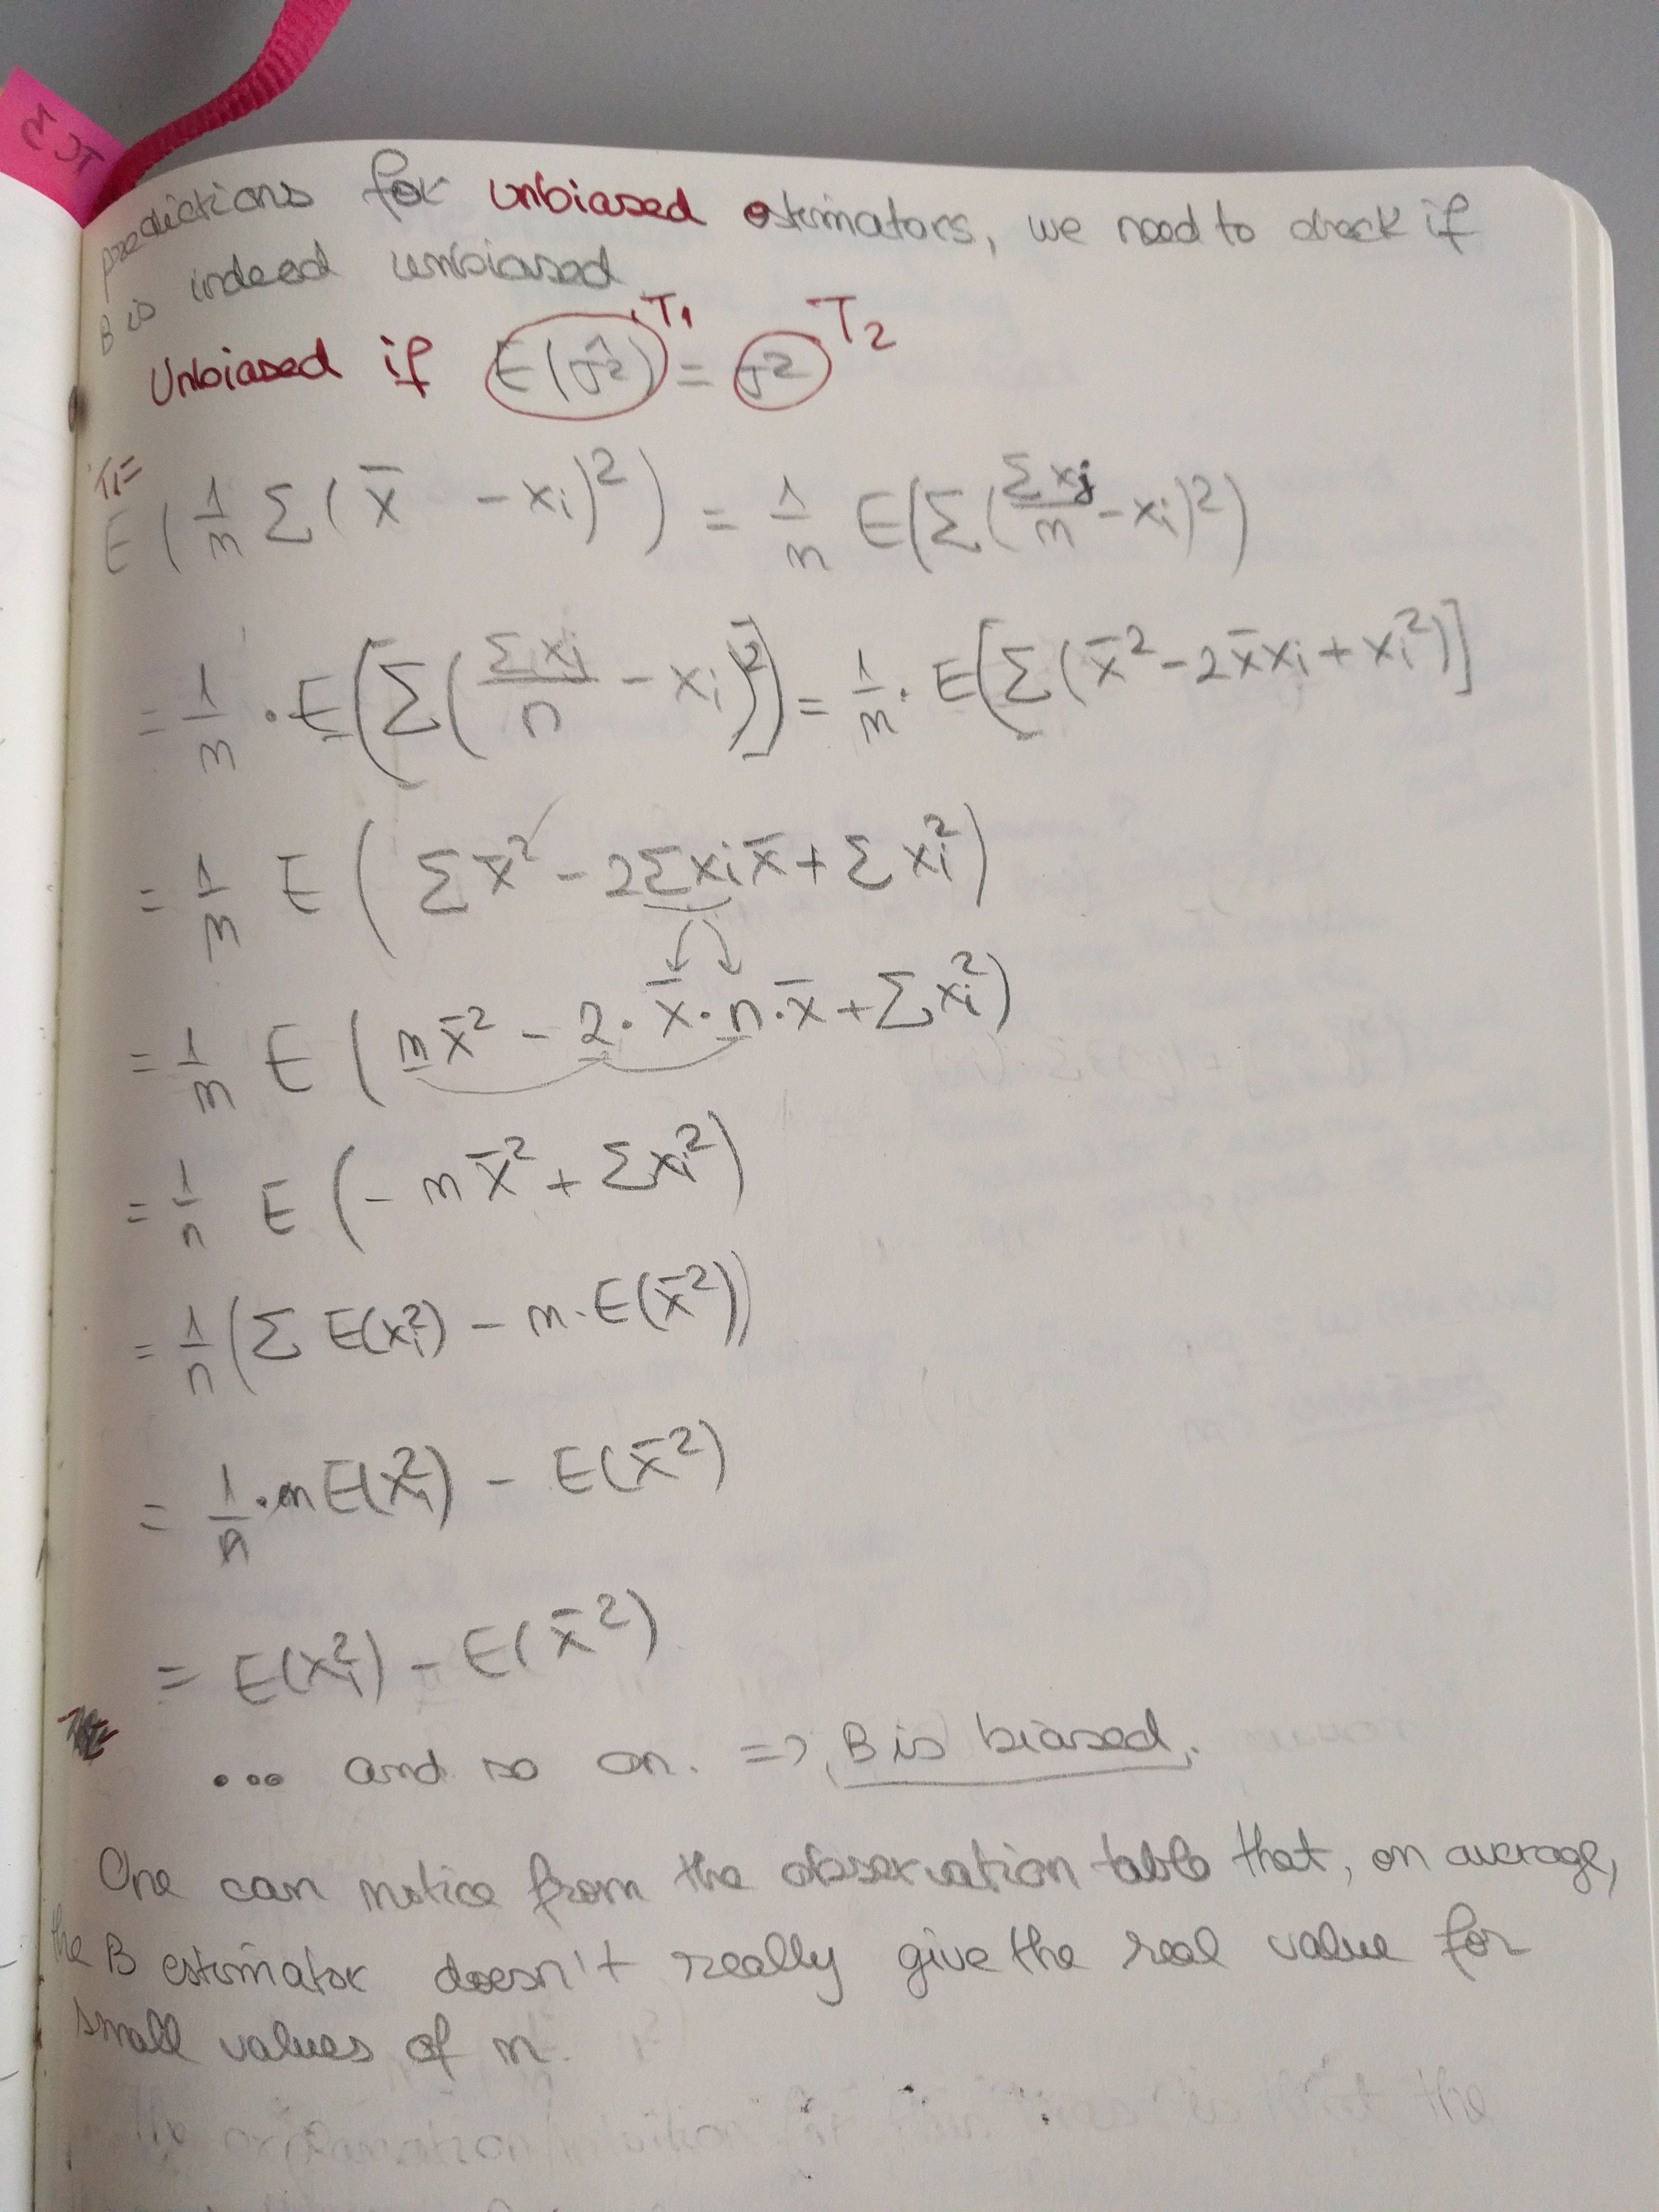 predictions for unbiased estimators, we need to check if
B is indeed unbiased
Unbiased if E(σ̂²) T₁ = σ² T₂
T₁=
E(1/n Σ(x̄ - xᵢ)²) = 1/n E(Σ(Σxⱼ/n - xᵢ)²)
= 1/n · E[Σ(Σxⱼ/n - xᵢ)²] = 1/n · E[Σ(x̄² - 2x̄xᵢ + xᵢ²)]
= 1/n E(Σx̄² - 2Σxᵢx̄ + Σxᵢ²)
= 1/n E(nx̄² - 2·x̄·n·x̄ + Σxᵢ²)
= 1/n E(-nx̄² + Σxᵢ²)
= 1/n (Σ E(xᵢ²) - n·E(x̄²))
= 1/n · nE(xᵢ²) - E(x̄²)
= E(xᵢ²) - E(x̄²)
... and so on. => B is biased.
One can notice from the observation table that, on average,
the B estimator doesn't really give the real value for
small values of n.